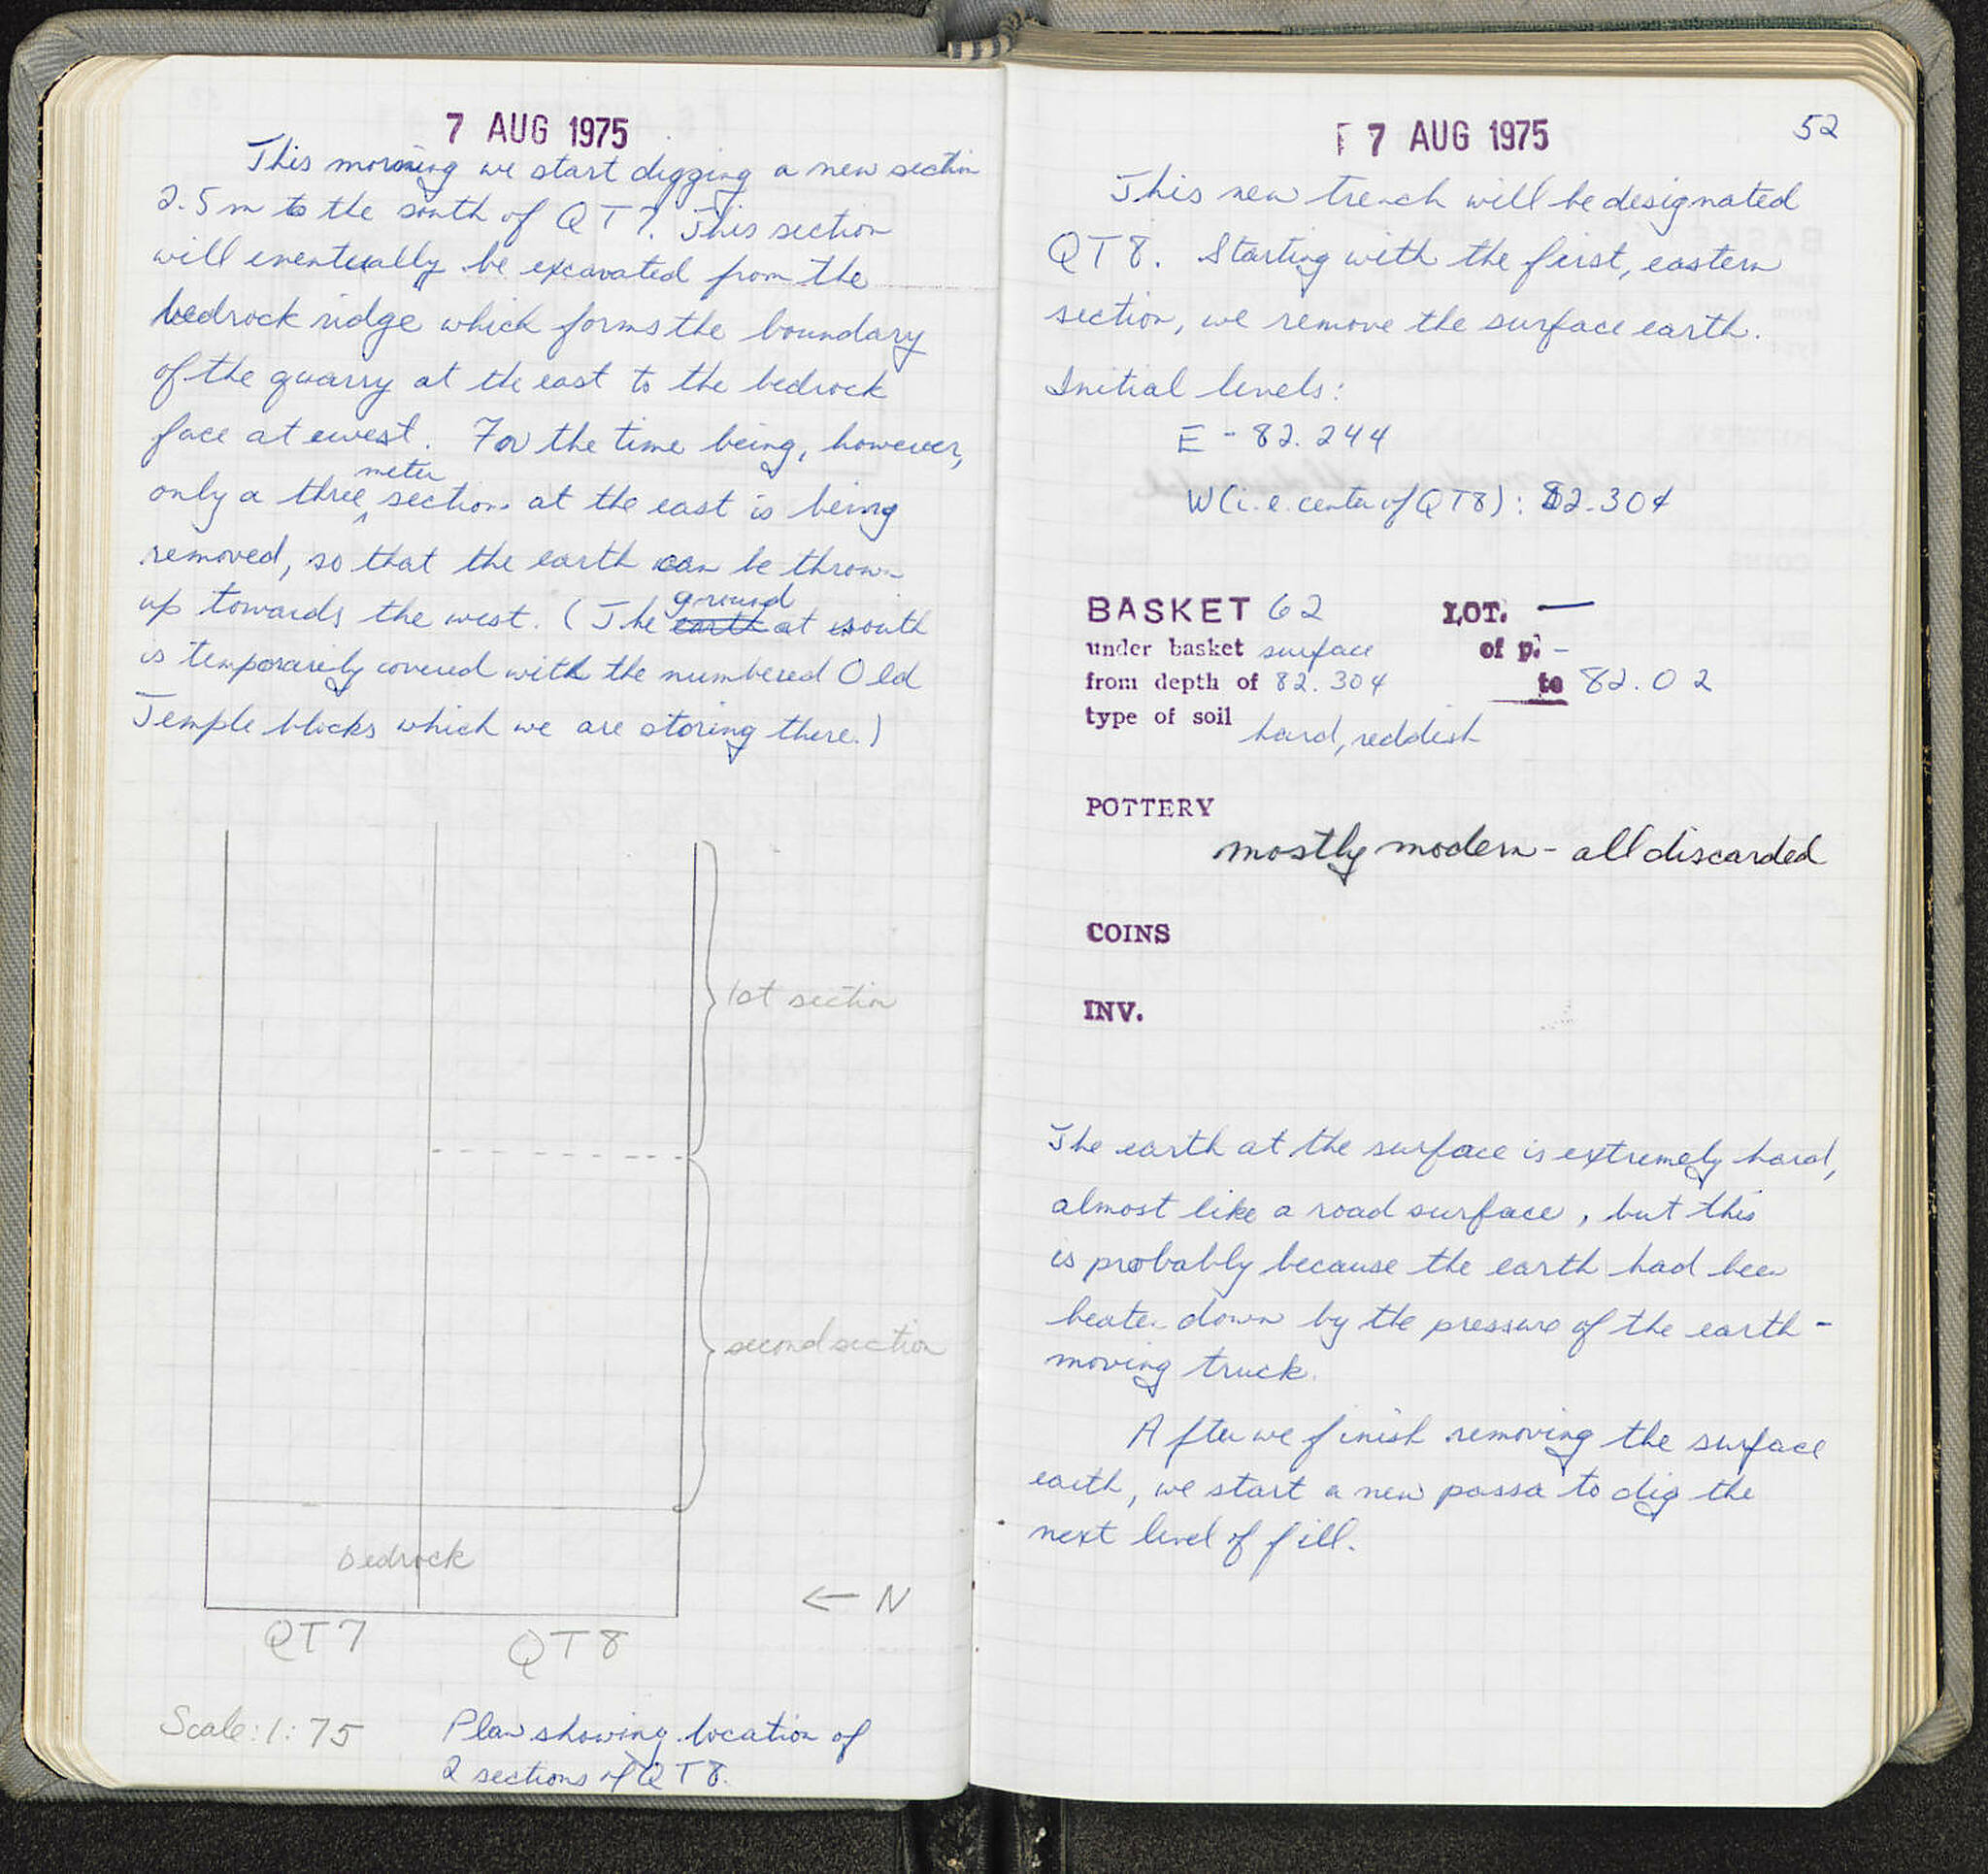 7 AUG 1975
This morning we start digging a new section
2.5m to the south of QT7. This section
will eventually be excavated from the
bedrock ridge which forms the boundary
of the quarry at the east to the bedrock
face at west. For the time being, however,
meter
only a three section at the east is being
removed, so that the earth can be thrown
up towards the west. (The earth ground at south
is temporarily covered with the numbered Old
Temple blocks which we are storing there.)
1st section
second section
bedrock
← N
QT7
QT8
Scale: 1:75
Plan showing location of
2 sections of QT8.
7 AUG 1975
52
This new trench will be designated
QT8. Starting with the first, eastern
section, we remove the surface earth.
Initial levels:
E - 82.244
W (i.e. center of QT8): 82.304
BASKET 62 LOT. —
under basket surface of p. -
from depth of 82.304 to 82.02
type of soil hard, reddish
POTTERY
mostly modern - all discarded
COINS
INV.
The earth at the surface is extremely hard,
almost like a road surface, but this
is probably because the earth had been
beaten down by the pressure of the earth-
moving truck.
After we finish removing the surface
earth, we start a new passa to dig the
next level of fill.